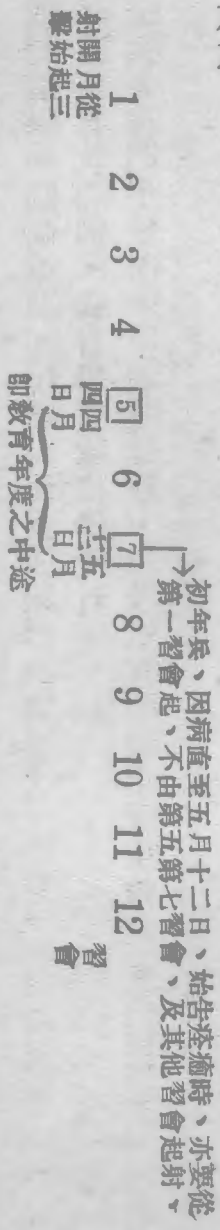 初年兵、因病直至五月十二日、始告痊癒時、亦要從
第一習會起、不由第五第七習會、及其他習會起射、
1 2 3 4 5 6 7 8 9 10 11 12
習會
從三月起開始射擊
四月四日
五月廿三日
即教育年度之中途